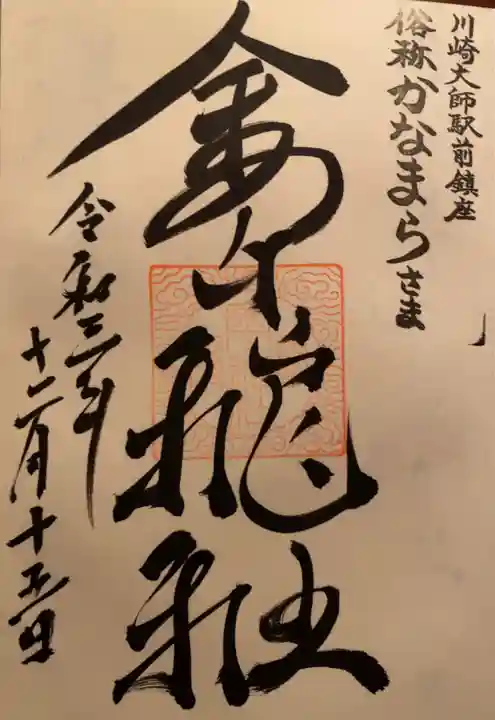 川崎大師駅前鎮座
俗称かなまらさま
金山神社
令和三年
十二月十五日